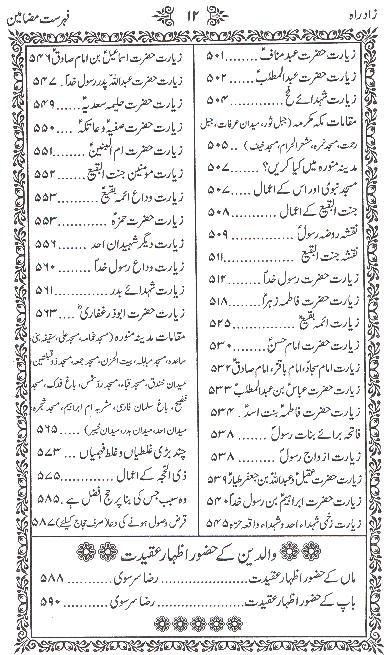 زادِ راہ
۱۲
فہرست مضامین
زیارت حضرت عبد منافؑ ........ ۵۰۱
زیارت حضرت عبدالمطلبؑ ........ ۵۰۲
زیارت شہدائے فخؑ ........ ۵۰۴
مقامات مکہ مکرمہ (جبل ثور، میدان عرفات، جبل
رحمت، مسجد نمرہ، مشعر الحرام، مسجد خیف) ........ ۵۰۵
مدینہ منورہ میں کیا کریں؟ ........ ۵۰۷
مسجد نبویؐ اور اس کے اعمال ........ ۵۰۷
جنت البقیع کے اعمال ........ ۵۰۸
نقشہ روضہ رسولؐ ........ ۵۰۹
نقشہ جنت البقیع ........ ۵۱۱
زیارت حضرت رسول خداؐ ........ ۵۱۴
زیارت حضرت فاطمہ زہراؑ ........ ۵۱۸
زیارت ائمہ بقیعؑ ........ ۵۲۵
زیارت حضرت امام حسنؑ ........ ۵۳۰
زیارت امام سجادؑ، امام باقرؑ، امام صادقؑ ۵۳۲
زیارت حضرت عباسؑ بن عبدالمطلبؑ ۵۳۳
زیارت حضرت فاطمہؑ بنت اسدؑ ۵۳۴
فاتحہ برائے بنات رسولؐ ........ ۵۳۸
زیارت ازواج رسولؐ ........ ۵۳۸
زیارت حضرت عقیلؑ و عبداللہ بن جعفر طیارؑ ۵۳۹
زیارت حضرت ابراہیمؑ بن رسول خداؐ ۵۴۰
زیارت زخمی شہداء احد و شہداء واقعہ حرہ ۵۴۵
زیارت حضرت اسماعیلؑ بن امام صادقؑ ۵۴۶
زیارت حضرت عبداللہؑ پدر رسول خداؐ ۵۴۷
زیارت حضرت حلیمہ سعدیہؑ ........ ۵۴۹
زیارت حضرت صفیہؑ و عاتکہؑ ........ ۵۵۰
زیارت حضرت ام البنینؑ ........ ۵۵۱
زیارت مؤمنین جنت البقیع ........ ۵۵۲
زیارت وداع ائمہ بقیعؑ ........ ۵۵۳
زیارت حضرت حمزہؑ ........ ۵۵۳
زیارت دیگر شہیدان احد ........ ۵۵۶
زیارت وداع رسول خداؐ ........ ۵۶۰
زیارت شہدائے بدر ........ ۵۶۱
زیارت حضرت ابوذر غفاریؓ ........ ۵۶۳
مقامات مدینہ منورہ (مسجد غمامہ، مسجد علی، سقیفہ بنی
ساعدہ، مسجد مباہلہ، بیت الحزن، مسجد جمعہ، مسجد ذو قبلتین،
میدان خندق، مسجد قباء، مسجد رد شمس، باغ فدک، مسجد
فضیح، باغ سلمان فارسی، مشربہ ام ابراہیم، مسجد شجرہ،
میدان احد، میدان بدر، میدان خیبر) ........ ۵۶۵
چند بڑی غلطیاں و غلط فہمیاں ........ ۵۷۳
ذی الحجہ کے اعمال ........ ۵۷۵
وہ سبب جس کی بنا پر حج افضل ہے ........ ۵۸۵
قرض وصول ہونے کی دعا (صرف حجاج کیلئے) ۵۸۷
والدین کے حضور اظہار عقیدت
ماں کے حضور اظہار عقیدت ........ رضا سرسوی ........ ۵۸۸
باپ کے حضور اظہار عقیدت ........ رضا سرسوی ........ ۵۹۰